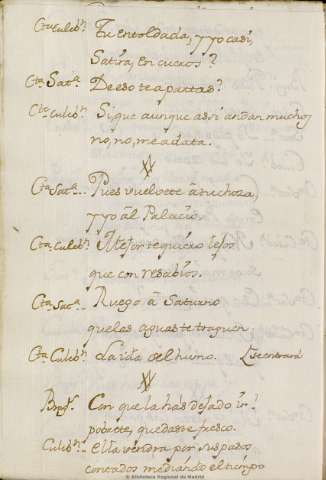 Cta Culebn. Tu entoldada, y yo casi,
Satira, en cueros?
Cta Sata. De eso te apartas?
Cta Culebn. Si, que aunque assi andan muchos
no, no, me adata.
Cta Sata. Pues vuelvete à tu choza,
y yo àl Palacio.
Cta Culebn. Mejor te quiero lejos
que con resabios.
Cta Sata. Ruego à Saturno
que las aguas te traguen
Cta Culebn. La ida del humo. Se entrará
Con que la hás dejado
pobrete, quedaste fresco.
Culebn. Ella vendra por sus pasos
contados mediando el tiempo
© Biblioteca Regional de Madrid